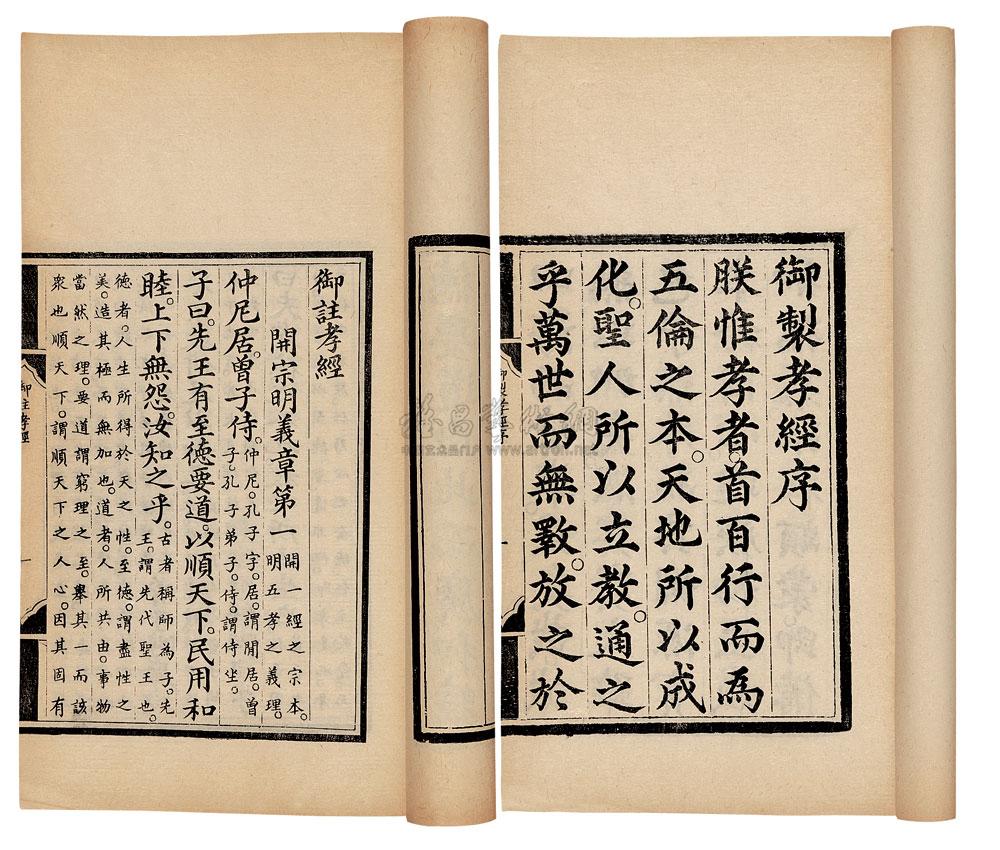 御製孝經序
朕惟孝者。首百行而為
五倫之本。天地所以成
化。聖人所以立教。通之
乎萬世而無斁。放之於
御製孝經序
御註孝經
開宗明義章第一
開一經之宗本。
明五孝之義理。
仲尼居。曾子侍。
仲尼。孔子字。居。謂閒居。曾
子孔子弟子。侍。謂侍坐。
子曰。先王有至德要道。以順天下。民用和
睦。上下無怨。汝知之乎。
古者稱師為子。先
王。謂先代聖王也。
德者。人生所得於天之性。至德。謂盡性之
美。造其極而無加也。道者。人所共由。事物
當然之理。要道謂窮理之至。舉其一而該
眾也順天下。謂順天下之人心。因其固有
御註孝經
一